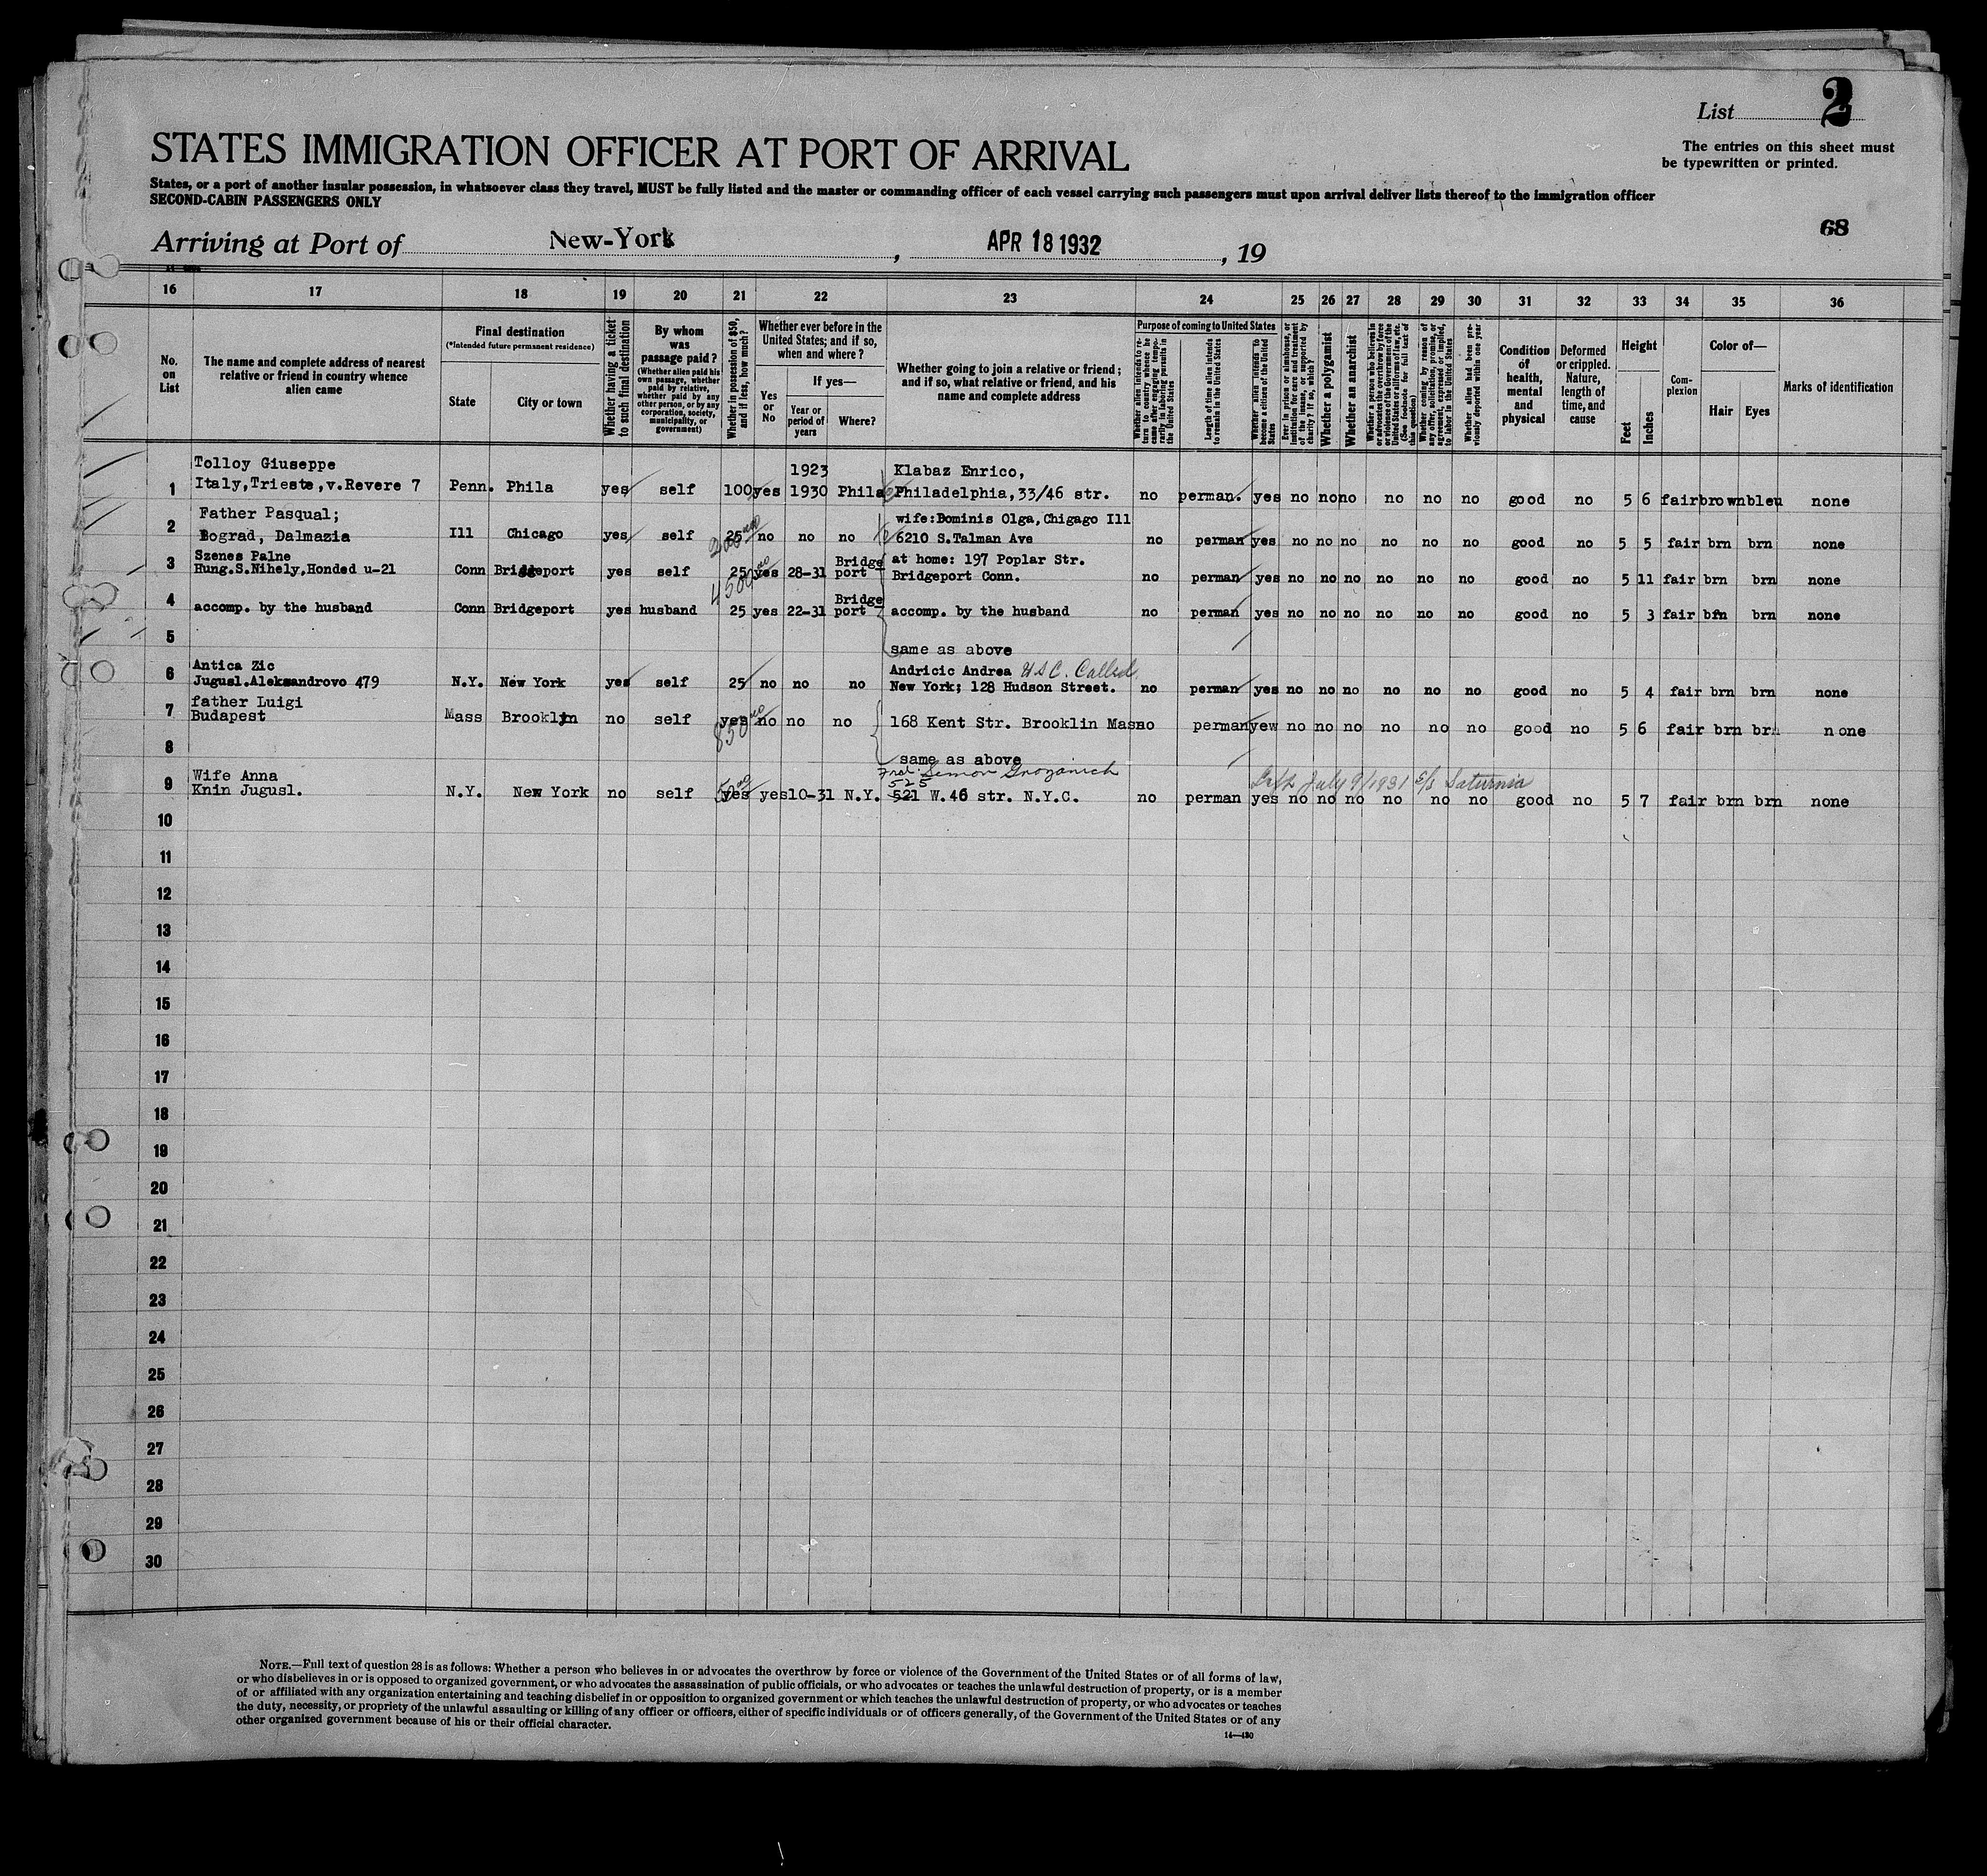 List 2
The entries on this sheet must
be typewritten or printed.
STATES IMMIGRATION OFFICER AT PORT OF ARRIVAL
States, or a port of another insular possession, in whatsoever class they travel, MUST be fully listed and the master or commanding officer of each vessel carrying such passengers must upon arrival deliver lists thereof to the immigration officer
SECOND-CABIN PASSENGERS ONLY
68
Arriving at Port of New-York, APR 18 1932, 19
16 17 18 19 20 21 22 23 24 25 26 27 28 29 30 31 32 33 34 35 36
No. on List
The name and complete address of nearest relative or friend in country whence alien came
Final destination
(*Intended future permanent residence)
State
City or town
Whether having a ticket to such final destination
By whom was passage paid?
(Whether alien paid his own passage, whether paid by relative, whether paid by any other person, or by any corporation, society, municipality, or government)
Whether in possession of $50, and if less, how much?
Whether ever before in the United States; and if so, when and where?
Yes or No
If yes—
Year or period of years
Where?
Whether going to join a relative or friend; and if so, what relative or friend, and his name and complete address
Purpose of coming to United States
Whether alien intends to return to country whence he came after engaging temporarily in laboring pursuits in the United States
Length of time alien intends to remain in the United States
Whether alien intends to become a citizen of the United States
Ever in prison or almshouse, or institution for care and treatment of the insane, or supported by charity? If so, which?
Whether a polygamist
Whether an anarchist
Whether a person who believes in or advocates the overthrow by force or violence of the Government of the United States or all forms of law, etc. (See footnote for full text of this question)
Whether coming by reason of any offer, solicitation, promise, or agreement, expressed or implied, to labor in the United States
Whether alien had been previously deported within one year
Condition of health, mental and physical
Deformed or crippled. Nature, length of time, and cause
Height
Feet
Inches
Complexion
Color of—
Hair
Eyes
Marks of identification
Tolloy Giuseppe 1923 Klabaz Enrico,
1 Italy,Trieste,v.Revere 7 Penn. Phila yes self 100 yes 1930 Phila Philadelphia,33/46 str. no perman. yes no no no no no no good no 5 6 fair brown bleu none
Father Pasqual; wife:Dominis Olga,Chigago Ill
2 Bograd, Dalmazia Ill Chicago yes self 25 no no no 6210 S.Talman Ave no perman yes no no no no no no good no 5 5 fair brn brn none
Szenes Palne Bridge at home: 197 Poplar Str.
3 Hung.S.Nihely,Honded u-21 Conn Bridgeport yes self 25 yes 28-31 port Bridgeport Conn. no perman yes no no no no no no good no 5 11 fair brn brn none
Bridge
4 accomp. by the husband Conn Bridgeport yes husband 25 yes 22-31 port accomp. by the husband no perman yes no no no no no no good no 5 3 fair brn brn none
5 same as above
Antica Zic Andricic Andrea USC. Called
6 Jugusl.Aleksandrovo 479 N.Y. New York yes self 25 no no no New York; 128 Hudson Street. no perman yes no no no no no no good no 5 4 fair brn brn none
father Luigi
7 Budapest Mass Brooklyn no self yes no no no 168 Kent Str. Brooklin Mass no perman yew no no no no no no good no 5 6 fair brn brn none
8 same as above
Wife Anna 525 July 9/1931 S/S Saturnia
9 Knin Jugusl. N.Y. New York no self yes yes 10-31 N.Y. 521 W.46 str. N.Y.C. no perman yes no no no no no no good no 5 7 fair brn brn none
10
11
12
13
14
15
16
17
18
19
20
21
22
23
24
25
26
27
28
29
30
NOTE.—Full text of question 28 is as follows: Whether a person who believes in or advocates the overthrow by force or violence of the Government of the United States or of all forms of law,
or who disbelieves in or is opposed to organized government, or who advocates the assassination of public officials, or who advocates or teaches the unlawful destruction of property, or is a member
of or affiliated with any organization entertaining and teaching disbelief in or opposition to organized government or which teaches the unlawful destruction of property, or who advocates or teaches
the duty, necessity, or propriety of the unlawful assaulting or killing of any officer or officers, either of specific individuals or of officers generally, of the Government of the United States or of any
other organized government because of his or their official character.
14—430